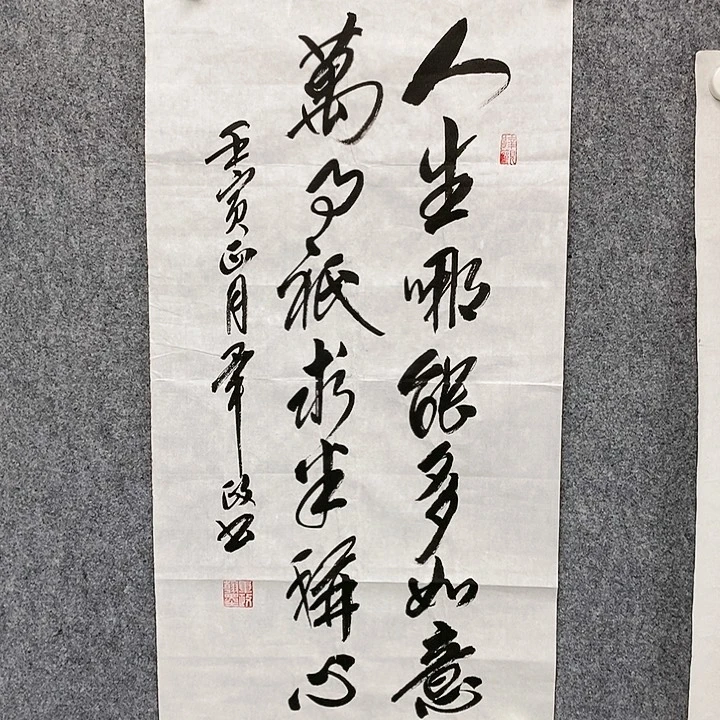 人生哪能多如意
萬事祇求半稱心
壬寅正月 政书